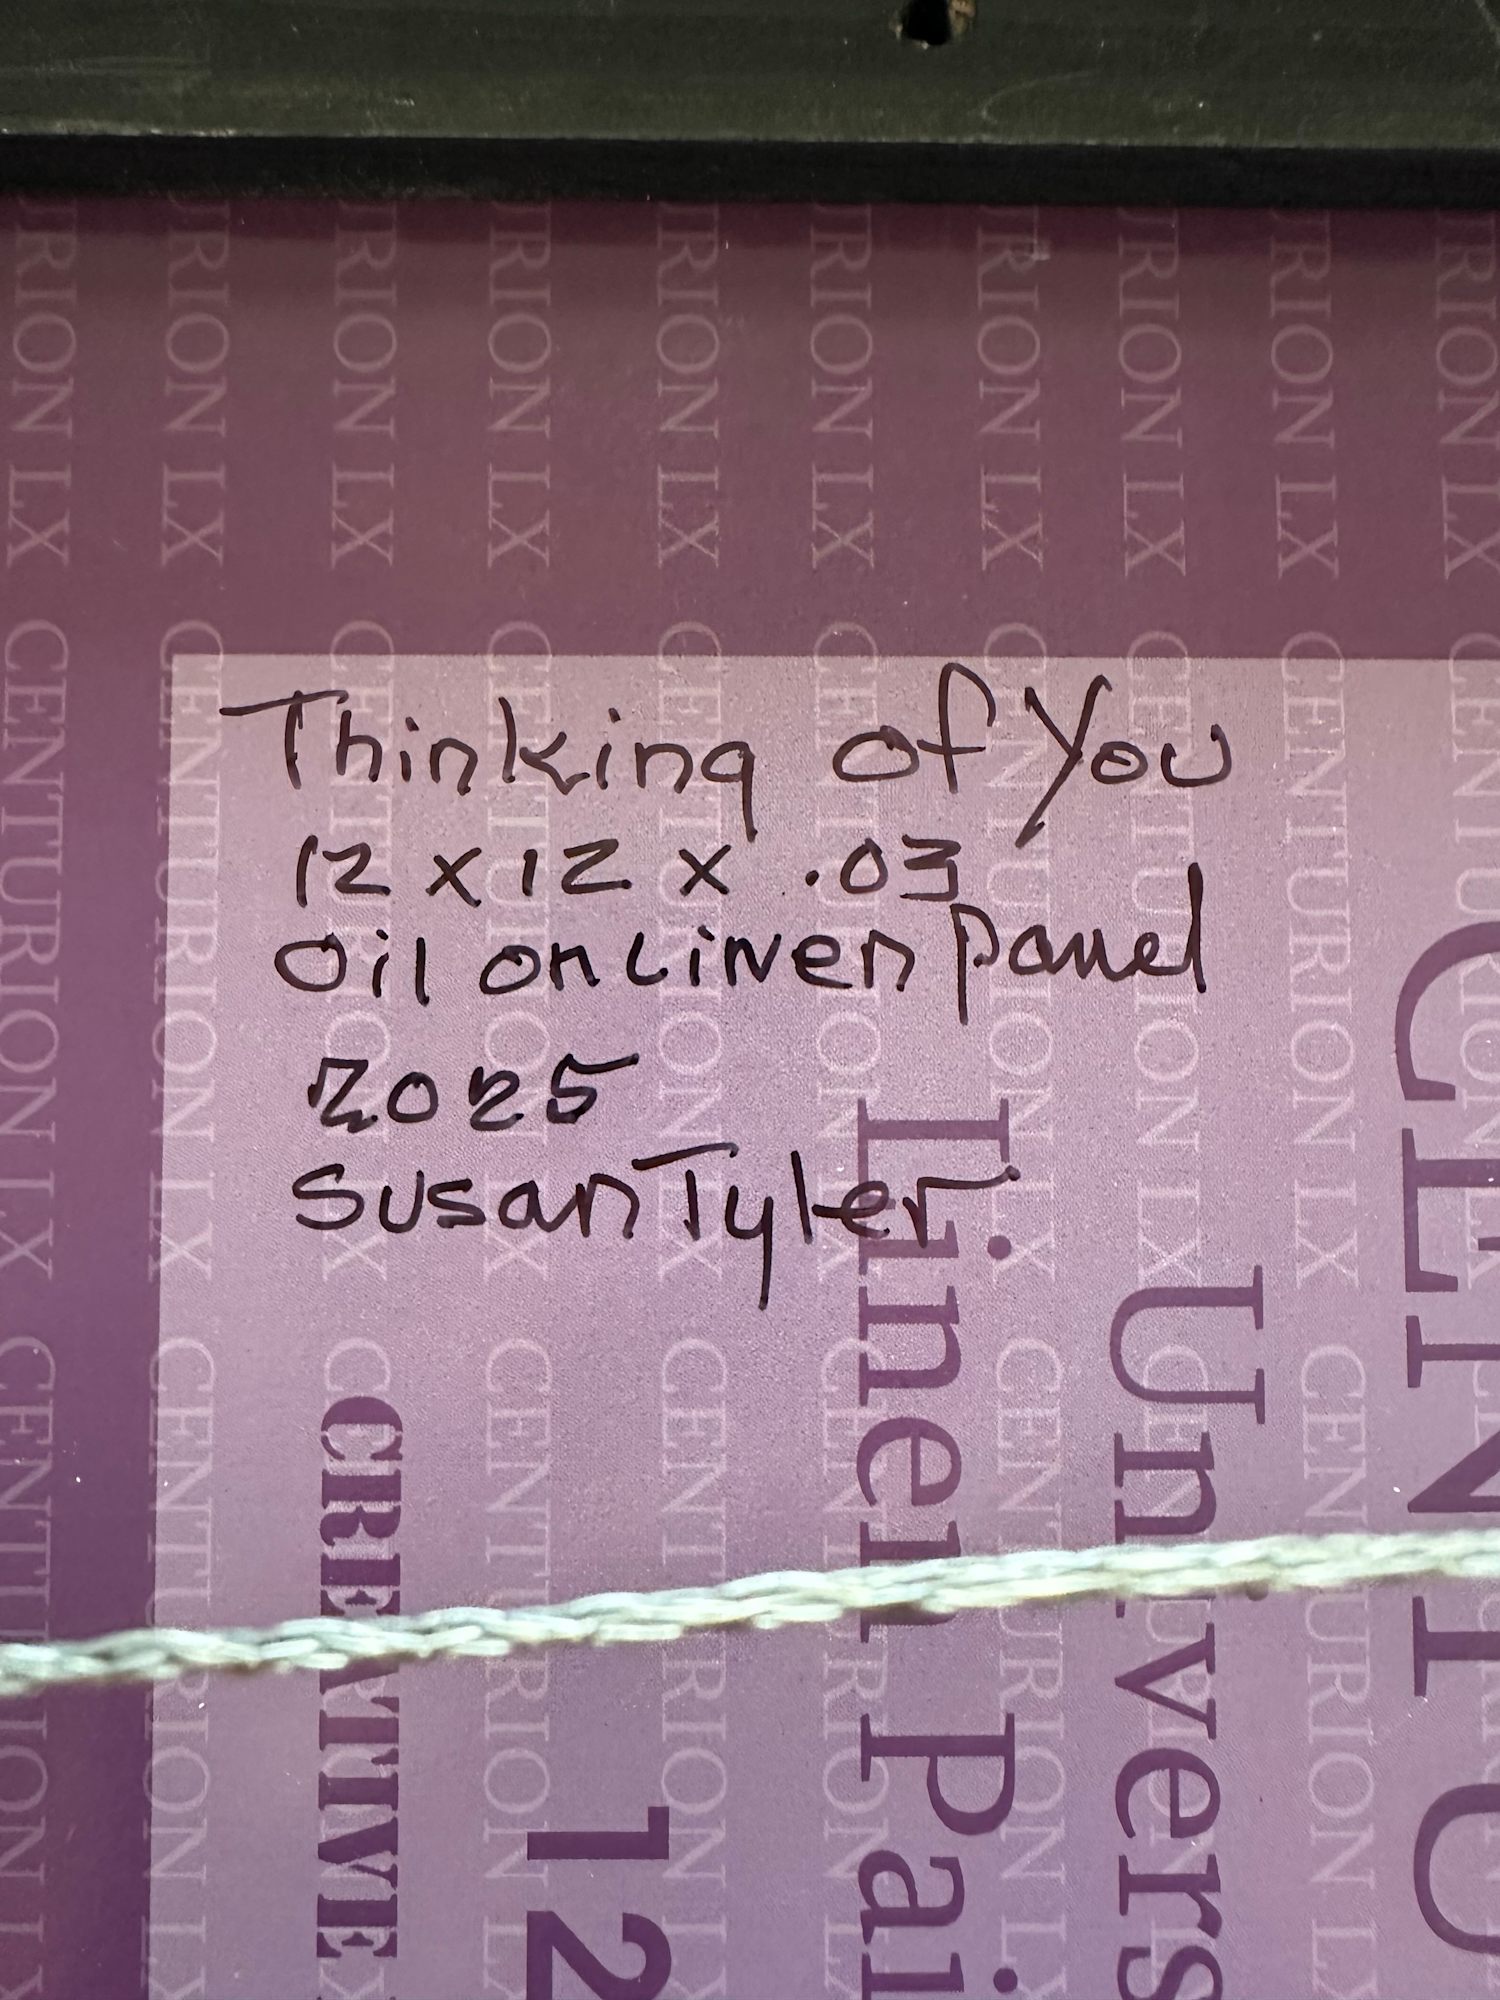 Thinking of You
12 x 12 x .03
Oil on Linen Panel
2025
Susan Tyler
CENTURION LX CENTURION LX
CREATIVE
12
Linen Pai
Univers
CENTU